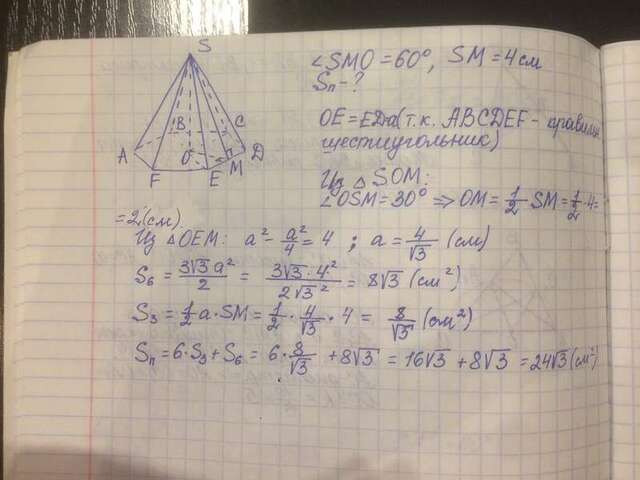 S
B
C
A
O
D
F
E
M
∠SMO = 60°, SM = 4 см
Sп - ?
OE = ED = a (т.к. ABCDEF - правильн
шестиугольник)
Из △ SOM:
∠OSM = 30° ⇒ OM = 1/2 SM = 1/2 · 4 =
= 2 (см)
Из △OEM: a² - a²/4 = 4 ; a = 4/√3 (см)
S₆ = 3√3 a²/2 = 3√3 · 4²/2√3² = 8√3 (см²)
S₃ = 1/2 a · SM = 1/2 · 4/√3 · 4 = 8/√3 (см²)
Sп = 6 · S₃ + S₆ = 6 · 8/√3 + 8√3 = 16√3 + 8√3 = 24√3 (см²)